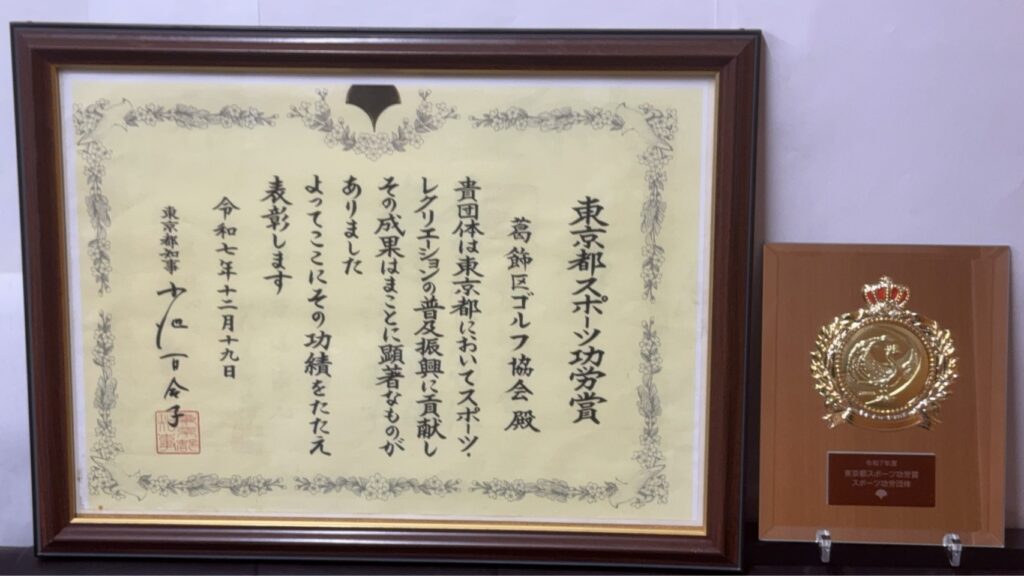 東京都スポーツ功労賞
葛飾区ゴルフ協会 殿
貴団体は東京都においてスポーツ・
レクリエーションの普及振興に貢献し
その成果はまことに顕著なものが
ありました
よってここにその功績をたたえ
表彰します
令和七年十二月十九日
東京都知事 小池百合子
令和7年度
東京都スポーツ功労賞
スポーツ功労団体